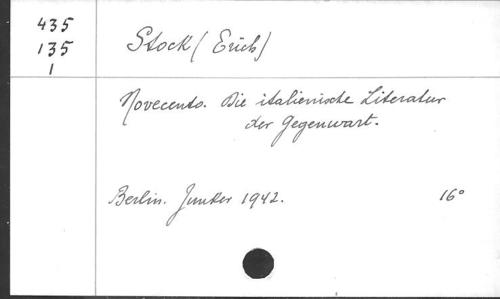 435
135
1
Stock (Erich)
Novecento. Die italienische Literatur
der Gegenwart.
Berlin. Junker 1942. 16°